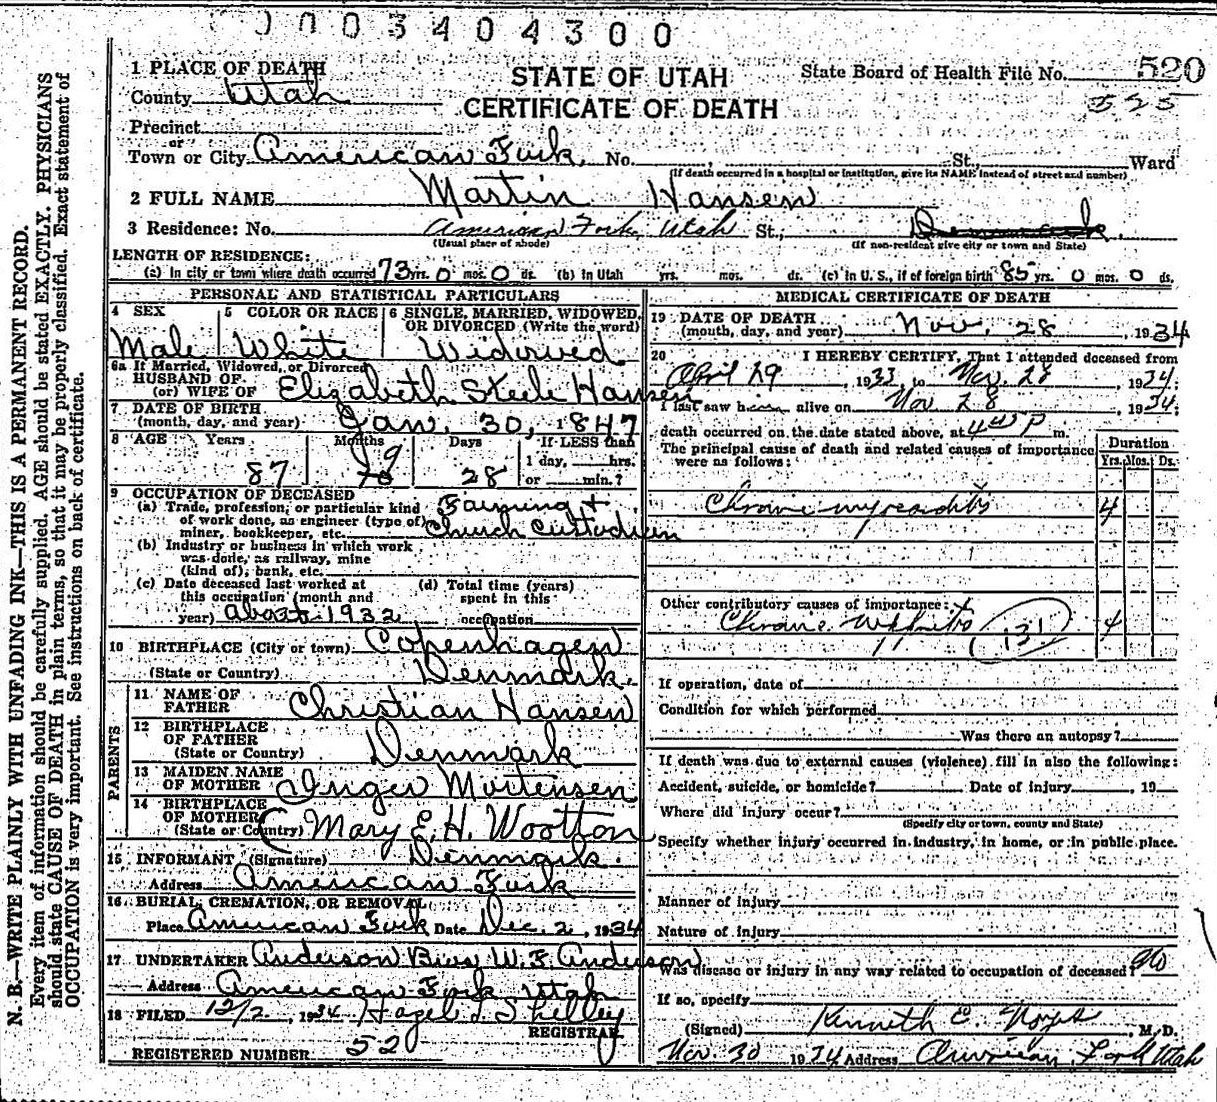 0003404300
1 PLACE OF DEATH
STATE OF UTAH
State Board of Health File No. 520
County Utah
CERTIFICATE OF DEATH
525
Precinct
or
Town or City American Fork, No. , St., Ward
(If death occurred in a hospital or institution, give its NAME instead of street and number)
2 FULL NAME Martin Hansen
3 Residence: No. American Fork, Utah St., Denmark.
(Usual place of abode) (If non-resident give city or town and State)
LENGTH OF RESIDENCE:
(a) In city or town where death occurred 73 yrs. 0 mos. 0 ds. (b) in Utah yrs. mos. ds. (c) in U. S., if of foreign birth 85 yrs. 0 mos. 0 ds.
PERSONAL AND STATISTICAL PARTICULARS
4 SEX 5 COLOR OR RACE 6 SINGLE, MARRIED, WIDOWED, OR DIVORCED (Write the word)
Male White Widowed
6a If Married, Widowed, or Divorced
HUSBAND OF
(or) WIFE OF Elizabeth Steele Hansen
7 DATE OF BIRTH
(month, day, and year) Jan. 30, 1847
8 AGE Years Months Days If LESS than
1 day, hrs.
87 9 10 28 or min.?
9 OCCUPATION OF DECEASED
(a) Trade, profession, or particular kind of work done, as engineer (type of) miner, bookkeeper, etc. Farming + Church Custodian
(b) Industry or business in which work was done, as railway, mine (kind of), bank, etc.
(c) Date deceased last worked at this occupation (month and year) about 1932
(d) Total time (years) spent in this occupation
10 BIRTHPLACE (City or town) Copenhagen
(State or Country) Denmark.
PARENTS
11 NAME OF FATHER Christian Hansen
12 BIRTHPLACE OF FATHER (State or Country) Denmark
13 MAIDEN NAME OF MOTHER Inger Mortensen
14 BIRTHPLACE OF MOTHER (State or Country) Mary E. H. Wootton
15 INFORMANT (Signature) Denmark.
Address American Fork
16 BURIAL, CREMATION, OR REMOVAL
Place American Fork Date Dec. 2, 1934
17 UNDERTAKER Anderson Bros W. E. Anderson
Address American Fork Utah
18 FILED 12/2, 1934 Hazel S Shelley
REGISTRAR
REGISTERED NUMBER 520
MEDICAL CERTIFICATE OF DEATH
19 DATE OF DEATH
(month, day, and year) Nov. 28, 1934
20 I HEREBY CERTIFY, That I attended deceased from
April 29, 1933, to Nov. 28, 1934;
I last saw him alive on Nov 28, 1934;
death occurred on the date stated above, at 4 P m.
The principal cause of death and related causes of importance were as follows:
Duration
Yrs. Mos. Ds.
Chronic myocarditis 4
Other contributory causes of importance:
Chronic nephritis 131 4
If operation, date of
Condition for which performed
Was there an autopsy?
If death was due to external causes (violence) fill in also the following:
Accident, suicide, or homicide? Date of injury , 19
Where did injury occur?
(Specify city or town, county and State)
Specify whether injury occurred in industry, in home, or in public place.
Manner of injury
Nature of injury
Was disease or injury in any way related to occupation of deceased? No
If so, specify
(Signed) Kenneth E. Noyes, M. D.
Nov. 30 1934 Address American Fork Utah
N. B.—WRITE PLAINLY WITH UNFADING INK—THIS IS A PERMANENT RECORD.
Every item of information should be carefully supplied. AGE should be stated EXACTLY. PHYSICIANS
should state CAUSE OF DEATH in plain terms, so that it may be properly classified. Exact statement of
OCCUPATION is very important. See instructions on back of certificate.